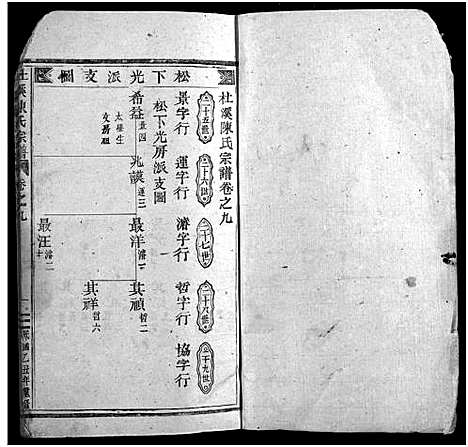 杜溪陳氏宗譜卷之九
松下光派支圖
二十五世
景字行
二十六世
運字行
二十七世
濬字行
二十八世
哲字行
二十九世
協字行
松下光房派支圖
希益
景四
太學生
支房祖
兆謨
運三
最洋
濬一
其禎
哲二
其祥
哲六
最汪
濬二
杜溪陳氏宗譜
卷之九
一
乙丑年